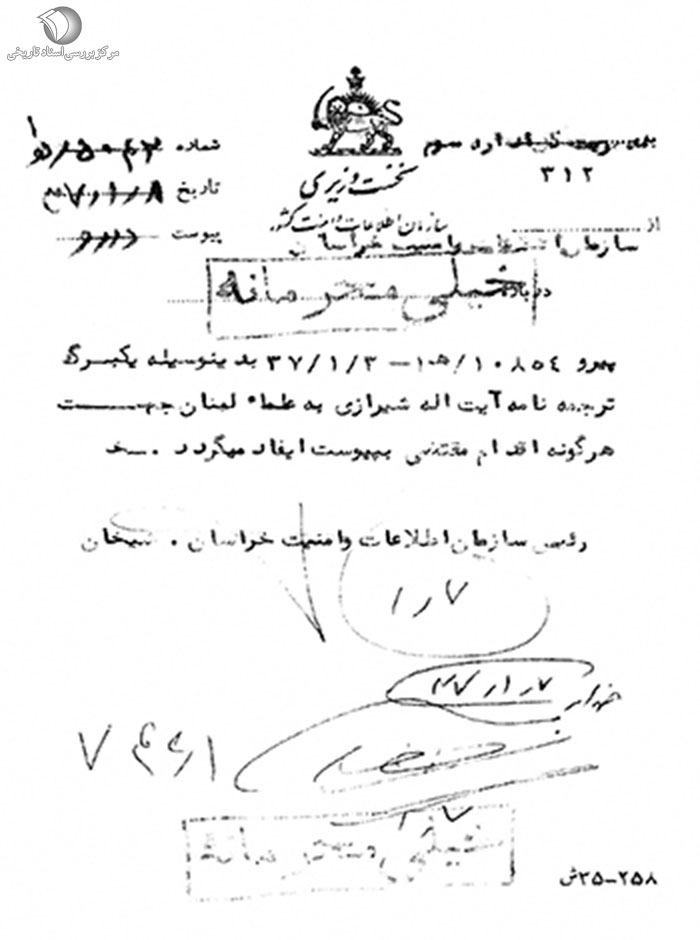 مرکز بررسی اسناد تاریخی
اداره سوم
۳۱۲
شماره
تاریخ
پیوست دارد
نخست وزیری
سازمان اطلاعات و امنیت کشور
از
سازمان اطلاعات و امنیت خراسان
درباره
خیلی محرمانه
پیرو ۱۰۸۵٤/ه‍۱ – ۳۷/۱/۳ بدینوسیله یکبرگ
ترجمه نامه آیت اله شیرازی به علماء لبنان جهت
هرگونه اقدام مقتضی بپیوست ایفاد میگردد .
رئیس سازمان اطلاعات و امنیت خراسان . شیخان
۷ر۱
خیلی محرمانه
۲۵۸–۳۵ش